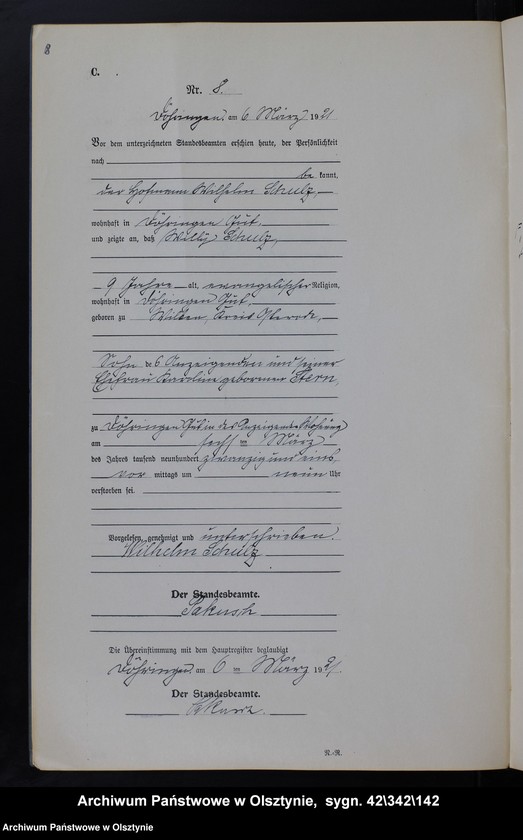 8
C.
Nr. 8.
Döhringen, am 6 März 1921
Vor dem unterzeichneten Standesbeamten erschien heute, der Persönlichkeit
nach
be kannt,
der Hofmann Wilhelm Schulz,
wohnhaft in Döhringen Gut,
und zeigte an, daß Willy Schulz,
9 Jahre alt, evangelischer Religion,
wohnhaft in Döhringen Gut,
geboren zu Wilken, Kreis Osterode,
Sohn des Anzeigenden und seiner
Ehefrau Karoline geborenen Stern,
zu Döhringen Gut in des Anzeigenden Wohnung
am sechsten März
des Jahres tausend neunhundert zwanzig und eins
vor mittags um neun Uhr
verstorben sei.
Vorgelesen, genehmigt und unterschrieben.
Wilhelm Schulz
Der Standesbeamte.
Die Übereinstimmung mit dem Hauptregister beglaubigt
Döhringen, am 6 ten März 1921
Der Standesbeamte.
N.-R.
Archiwum Państwowe w Olsztynie, sygn. 42\342\142
Archiwum Państwowe w Olsztynie